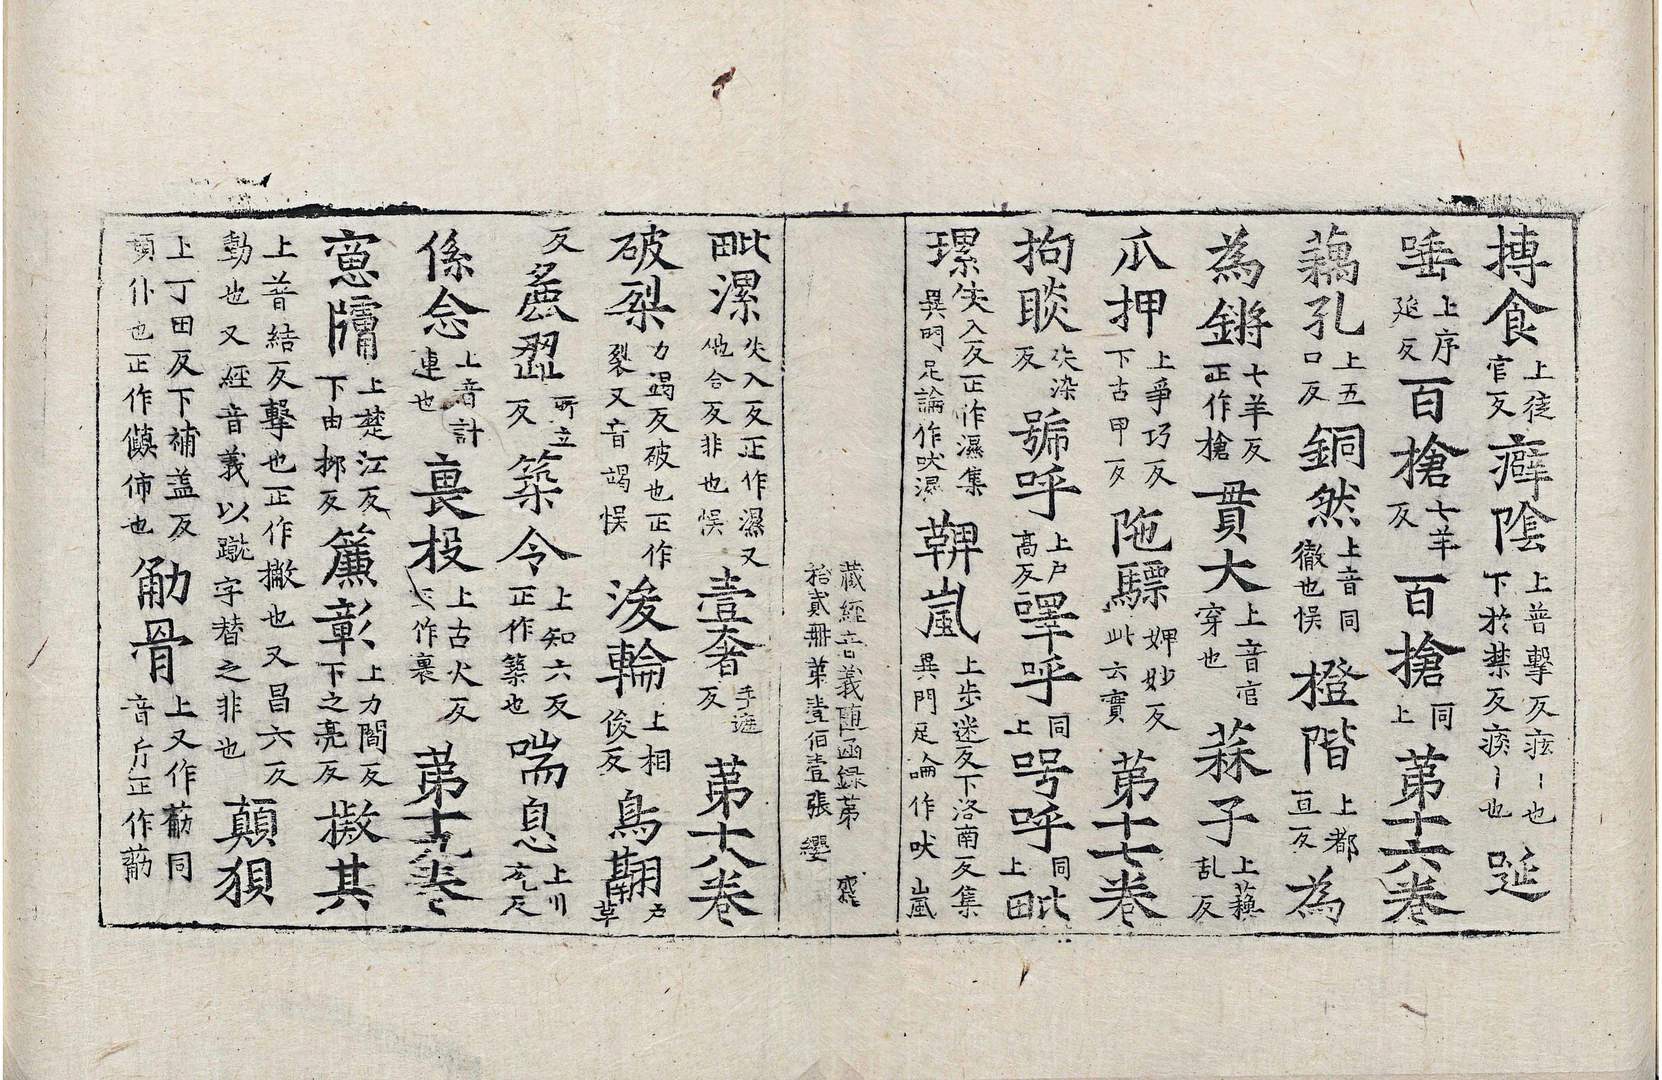 摶食上徒官反癖陰上普擊反痃～也下於禁反㾜～也 涎
唾上序延反百搶七羊反百搶同上第十六卷
藕孔上五口反銅然上音同徹也悮橙階上都亘反為
為鏘七羊反正作槍貫大上音官穿也蒜子上蘓乱反
爪押上爭巧反下古甲反陁驃毗妙反此云實第十七卷
拘睒失染反號呼上戶高反嘷呼同上呺呼同上毗
㻿失入反正作濕集異門足論作吠濕鞞嵐上步迷反下洛南反集異門足論作吠嵐
藏經音義隨函録第拾貳冊第壹伯壹張 纓
毗漯失入反正作濕又他合反非也悮壹奢手遮反第十八卷
破梨力竭反破也正作裂又音竭悮浚輪上相俊反鳥翮戶革
反麁澀所立反築令上知六反正作築也喘息上川兖反
係念上音計連也裹投上古火反正作裹第十九卷
窓牖上楚江反下由柳反簾彰上力閻反下之亮反撆其
上普結反擊也正作撇也又昌六反動也又經音義以蹴字替之非也顛狽
上丁田反下補盖反頓仆也正作傎㤄也觔骨上又作葪同音斤正作葪